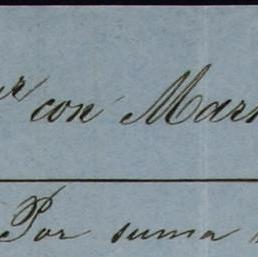 con Mar
Por suma